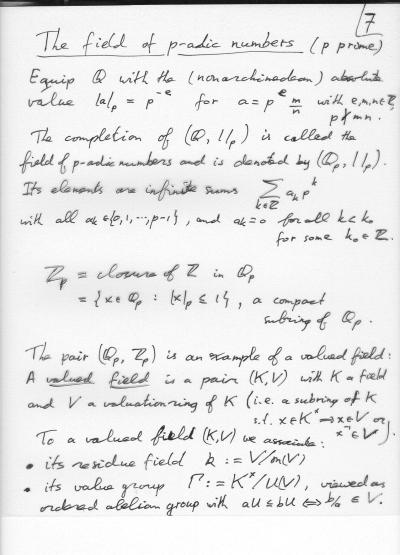 7
The field of p-adic numbers (p prime)
Equip ℚ with the (nonarchimedean) absolute
value |a|_p = p^{-e} for a = p^e m/n with e,m,n∈ℤ,
p∤mn.
The completion of (ℚ, | |_p) is called the
field of p-adic numbers and is denoted by (ℚ_p, | |_p).
Its elements are infinite sums ∑_{k∈ℤ} a_k p^k
with all a_k∈{0,1,…,p-1}, and a_k=0 for all k<k_0
for some k_0∈ℤ.
ℤ_p = closure of ℤ in ℚ_p
= {x∈ℚ_p : |x|_p ≤ 1}, a compact
subring of ℚ_p.
The pair (ℚ_p, ℤ_p) is an example of a valued field:
A valued field is a pair (K,V) with K a field
and V a valuation ring of K (i.e. a subring of K
s.t. x∈K^× ⇒ x∈V or
x^{-1}∈V).
To a valued field (K,V) we associate:
• its residue field k := V/m(V)
• its value group Γ := K^×/U(V), viewed as
ordered abelian group with aU ≤ bU ⇔ b/a ∈ V.